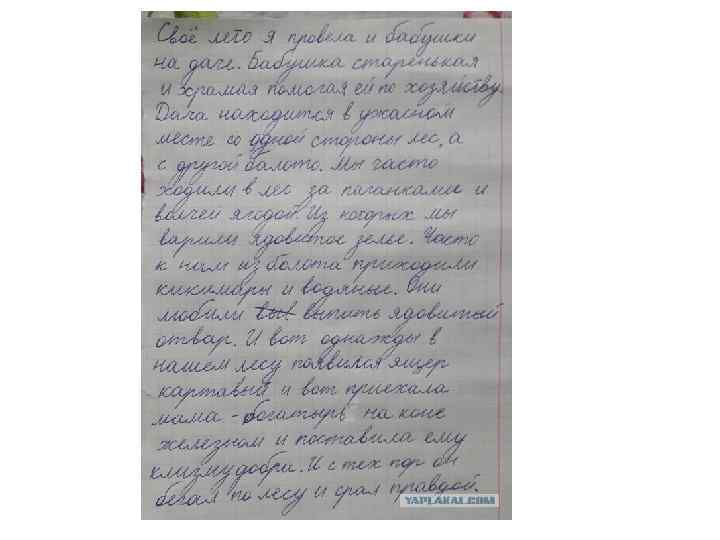 Своё лето я провела и бабушки
на даче. Бабушка старенькая
и храмая помогая ей по хозяйству.
Дача находится в ужасном
месте со одной стороны лес, а
с другой балото. Мы часто
ходили в лес за паганками и
волчей ягодой. Из которых мы
варили ядовитое зелье. Часто
к нам из болота приходили
кикимары и водяные. Они
любили выпить ядовитый
отвар. И вот однажды в
нашем лесу появился ящер
картавый и вот приехала
мама - богатырь на коне
железном и поставила ему
клизму добри. И с тех пор он
бегал по лесу и срал правдой.
YAPLAKAL.COM